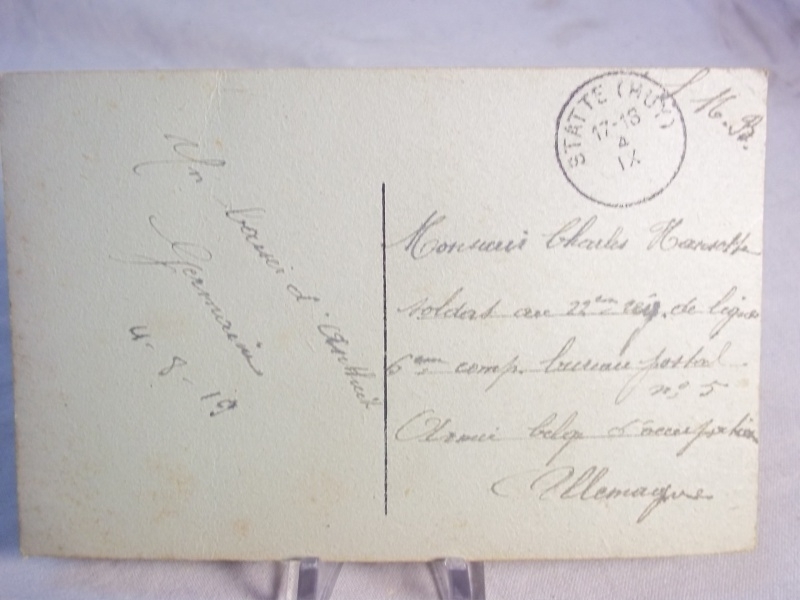 Un baiser d'Antheit
Germain
4-8-19
STATTE (HUY)
17-18
4
IX
S. M. B.
Monsieur Charles Hansotte
soldat au 22ème rég. de ligne
6ème comp. bureau postal
n° 5
Armée belge d'occupation
Allemagne